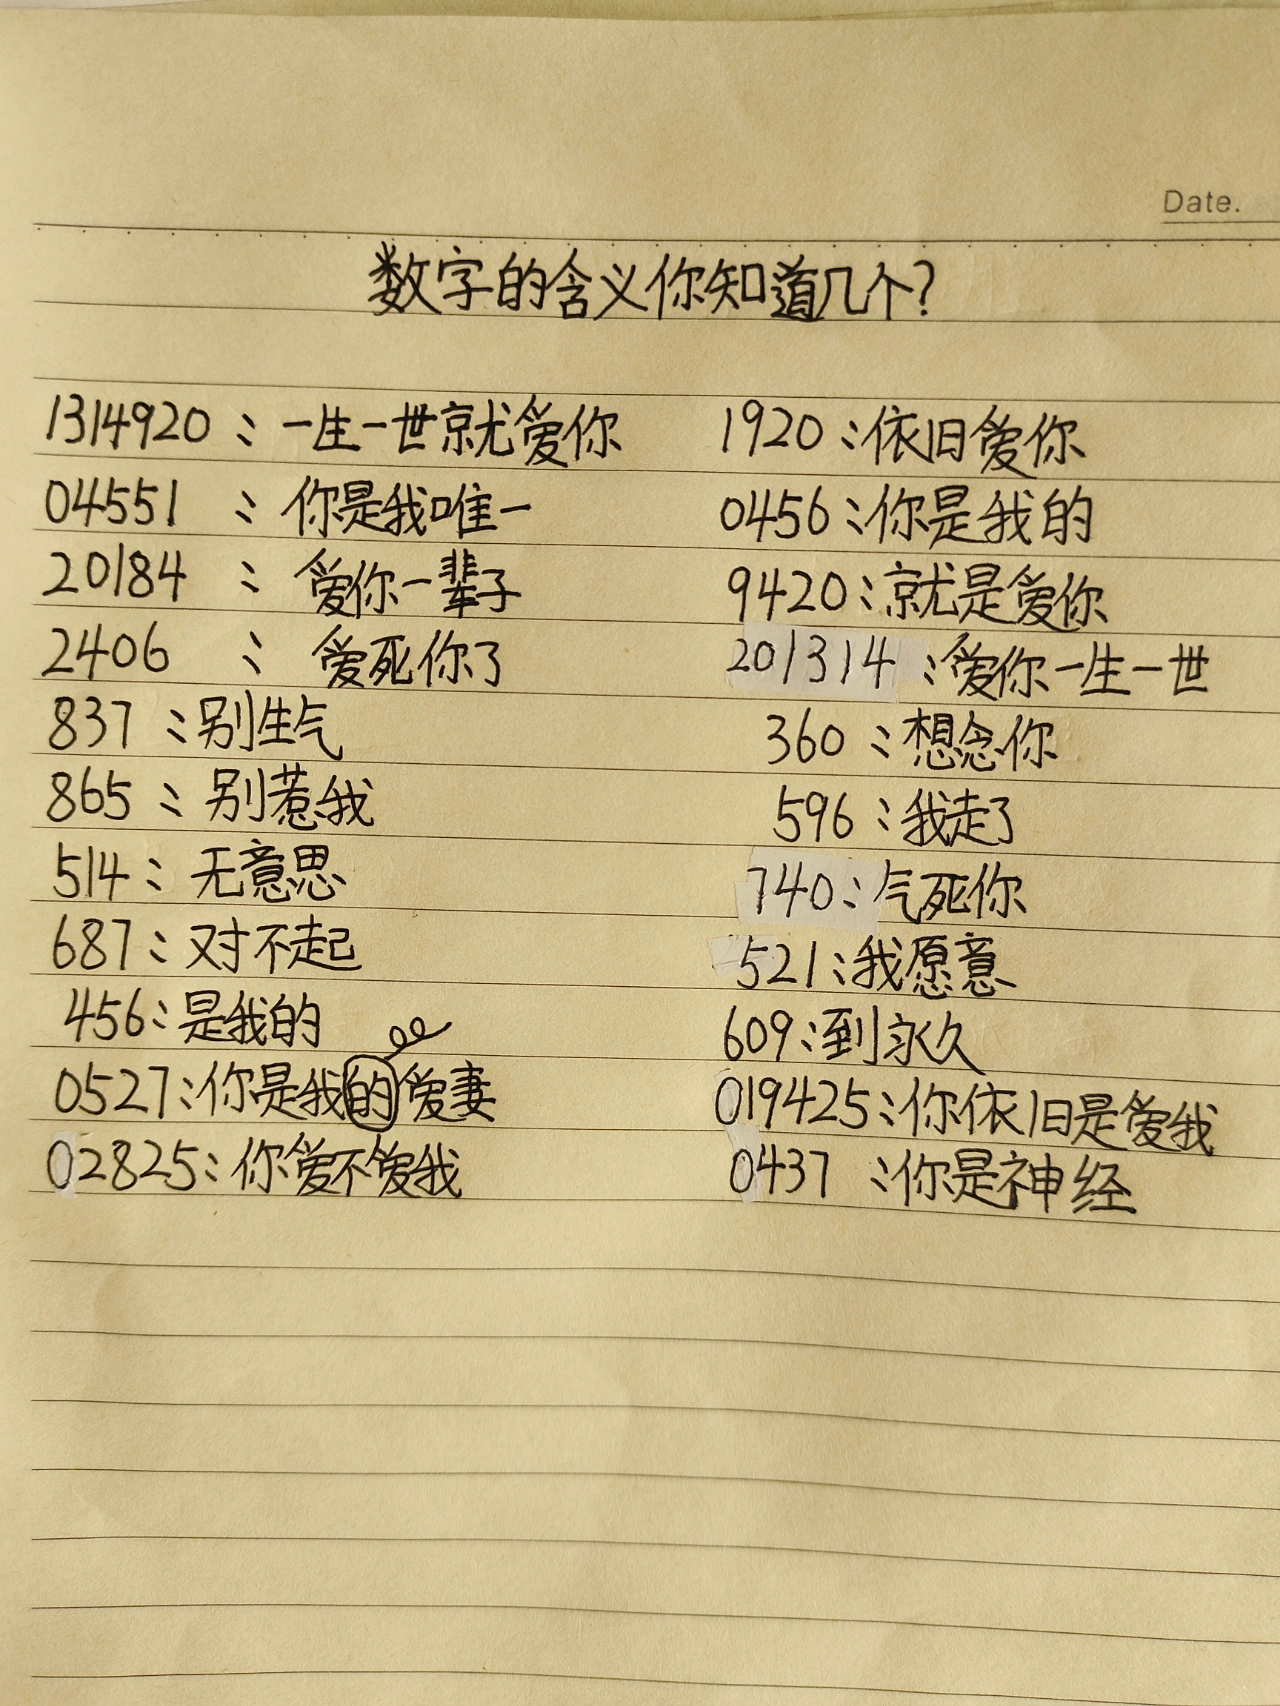 Date.
数字的含义你知道几个?
1314920：一生一世就爱你
04551：你是我唯一
20184：爱你一辈子
2406：爱死你了
837：别生气
865：别惹我
514：无意思
687：对不起
456：是我的
0527：你是我的爱妻
02825：你爱不爱我
1920：依旧爱你
0456：你是我的
9420：就是爱你
201314：爱你一生一世
360：想念你
596：我走了
740：气死你
521：我愿意
609：到永久
019425：你依旧是爱我
0437：你是神经